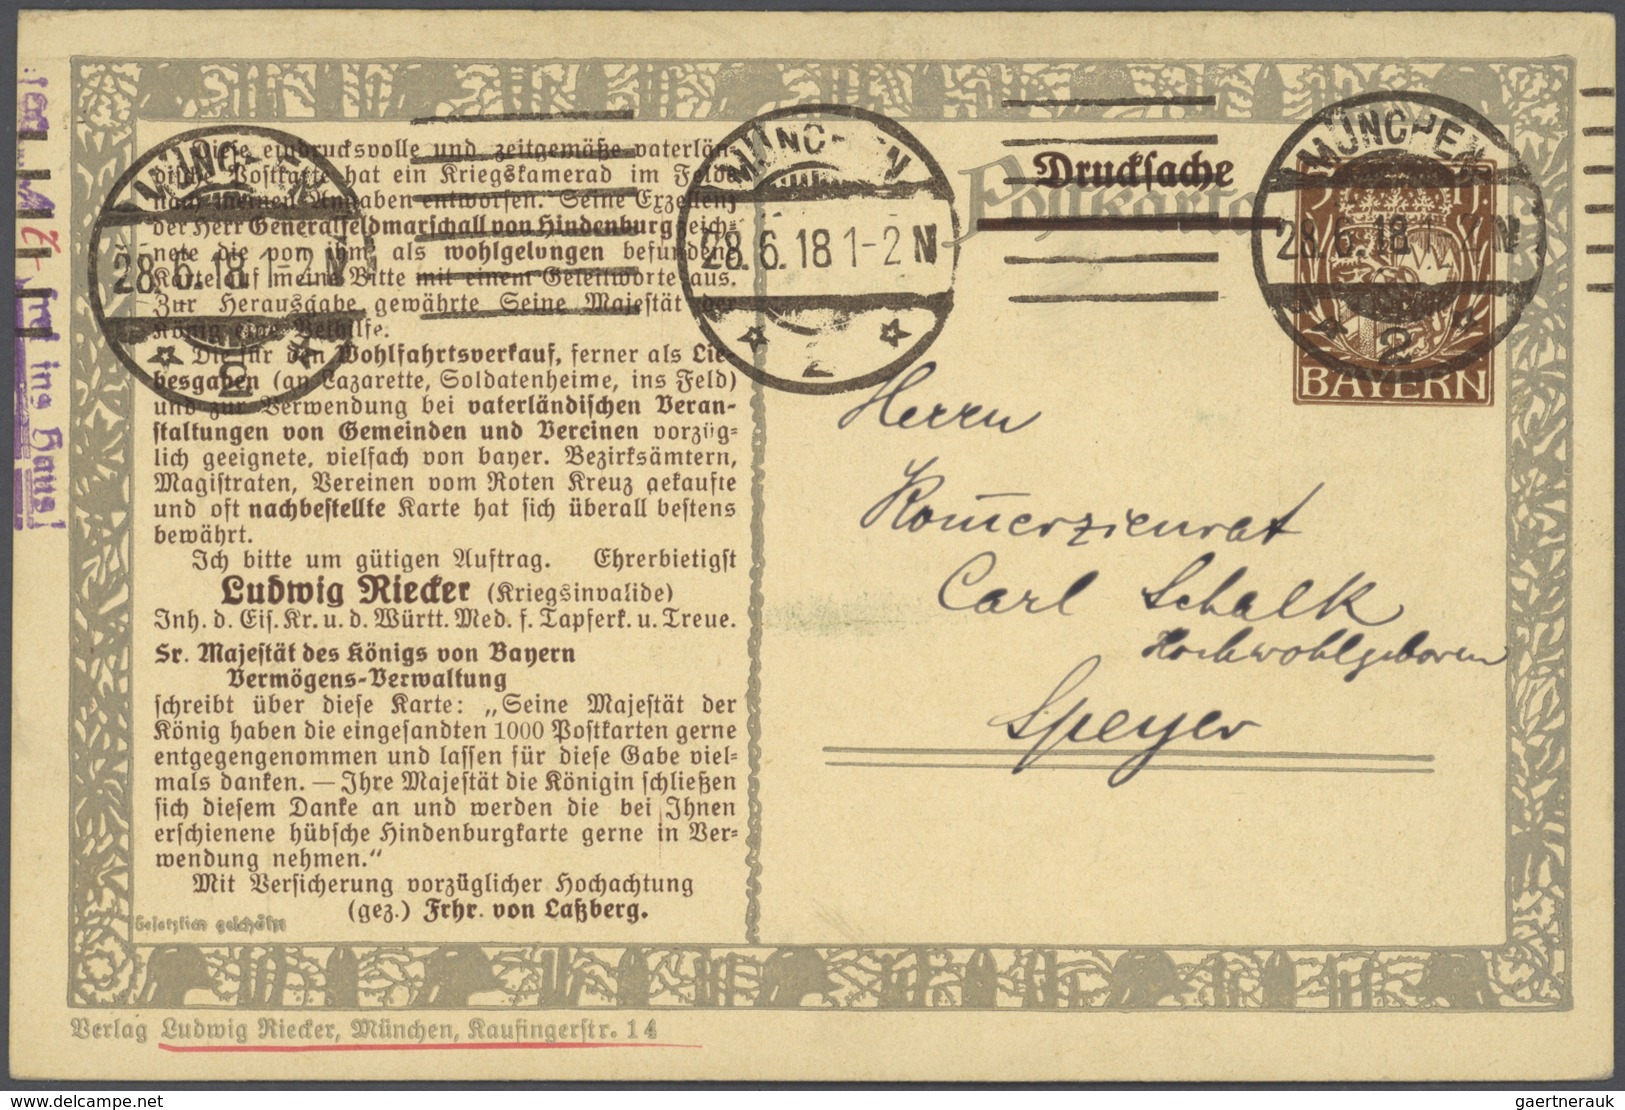 Diese eindrucksvolle und zeitgemäße vaterlän-
dische Postkarte hat ein Kriegskamerad im Felde
nach meinen Angaben entworfen. Seine Exzellenz
der Herr Generalfeldmarschall von Hindenburg zeich-
nete die von ihm als wohlgelungen befundene
Karte auf meine Bitte mit einem Geleitworte aus.
Zur Herausgabe gewährte Seine Majestät der
König eine Beihilfe.
Die für den Wohlfahrtsverkauf, ferner als Lie-
besgaben (an Lazarette, Soldatenheime, ins Feld)
und zur Verwendung bei vaterländischen Veran-
staltungen von Gemeinden und Vereinen vorzüg-
lich geeignete, vielfach von bayer. Bezirksämtern,
Magistraten, Vereinen vom Roten Kreuz gekaufte
und oft nachbestellte Karte hat sich überall bestens
bewährt.
Ich bitte um gütigen Auftrag. Ehrerbietigst
Ludwig Riecker (Kriegsinvalide)
Inh. d. Eis. Kr. u. d. Württ. Med. f. Tapferk. u. Treue.
Sr. Majestät des Königs von Bayern
Vermögens-Verwaltung
schreibt über diese Karte: „Seine Majestät der
König haben die eingesandten 1000 Postkarten gerne
entgegengenommen und lassen für diese Gabe viel-
mals danken. — Ihre Majestät die Königin schließen
sich diesem Danke an und werden die bei Ihnen
erschienene hübsche Hindenburgkarte gerne in Ver-
wendung nehmen.“
Mit Versicherung vorzüglicher Hochachtung
(gez.) Frhr. von Laßberg.
Gesetzlich geschützt
Verlag Ludwig Riecker, München, Kaufingerstr. 14
MÜNCHEN
28.6.18 1-2 N
2
MÜNCHEN
28.6.18 1-2 N
2
Drucksache
Postkarte
MÜNCHEN
28.6.18 1-2 N
2
BAYERN
Herrn
Komerzienrat
Carl Schalk
Hochwohlgeboren
Speyer
frei ins Haus!
gaertnerauk / hipstamp.com